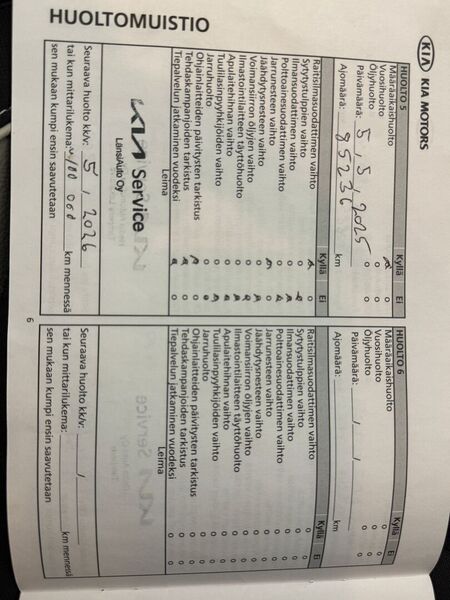 HUOLTOMUISTIO
KIA KIA MOTORS
HUOLTO 5 Kyllä Ei
Määräaikaishuolto o
Vuosihuolto o o
Öljyhuolto o o
Päivämäärä: 5 , 5 , 2025
Ajomäärä: 85236 km
Kyllä Ei
Raitisilmasuodattimen vaihto o
Sytytystulppien vaihto o
Ilmansuodattimen vaihto o
Polttoainesuodattimen vaihto o
Jarrunesteen vaihto o
Jäähdytysnesteen vaihto o
Voimansiirron öljyjen vaihto o
Ilmastointilaitteen täyttöhuolto o
Apulaitehihnan vaihto o
Tuulilasinpyyhkijöiden vaihto o
Jarruhuolto o
Ohjainlaitteiden päivitysten tarkistus o
Tehdaskampanjoiden tarkistus o
Tiepalvelun jatkaminen vuodeksi o
Leima
KIA Service
LänsiAuto Oy
Seuraava huolto kk/v: 5 , 2026
tai kun mittarilukema: 100 000 km mennessä
sen mukaan kumpi ensin saavutetaan
HUOLTO 6 Kyllä Ei
Määräaikaishuolto o o
Vuosihuolto o o
Öljyhuolto o o
Päivämäärä: / /
Ajomäärä: km
Kyllä Ei
Raitisilmasuodattimen vaihto o o
Sytytystulppien vaihto o o
Ilmansuodattimen vaihto o o
Polttoainesuodattimen vaihto o o
Jarrunesteen vaihto o o
Jäähdytysnesteen vaihto o o
Voimansiirron öljyjen vaihto o o
Ilmastointilaitteen täyttöhuolto o o
Apulaitehihnan vaihto o o
Tuulilasinpyyhkijöiden vaihto o o
Jarruhuolto o o
Ohjainlaitteiden päivitysten tarkistus o o
Tehdaskampanjoiden tarkistus o o
Tiepalvelun jatkaminen vuodeksi o o
Leima
Seuraava huolto kk/v: /
tai kun mittarilukema: km mennessä
sen mukaan kumpi ensin saavutetaan
6